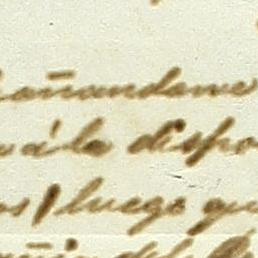 añandome
a á la dispo
os luego qu